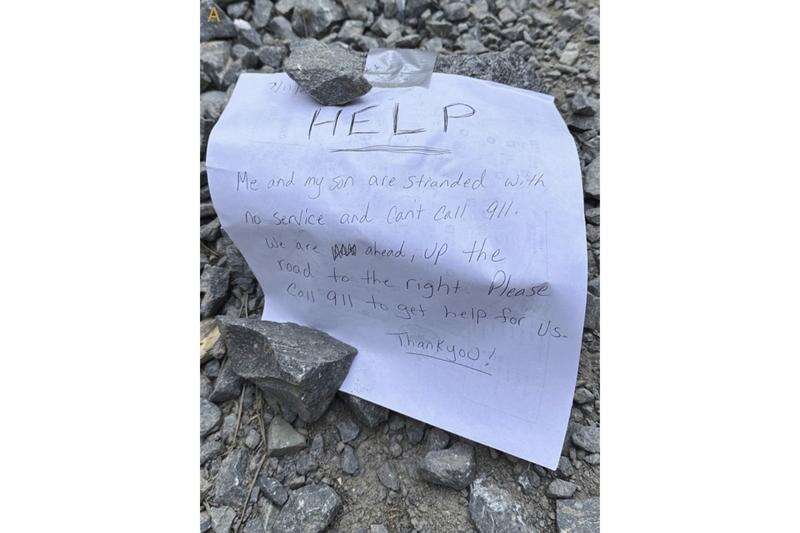 A
HELP
Me and my son are stranded with
no service and can't call 911.
We are ahead, up the
road to the right. Please
call 911 to get help for us.
Thankyou!